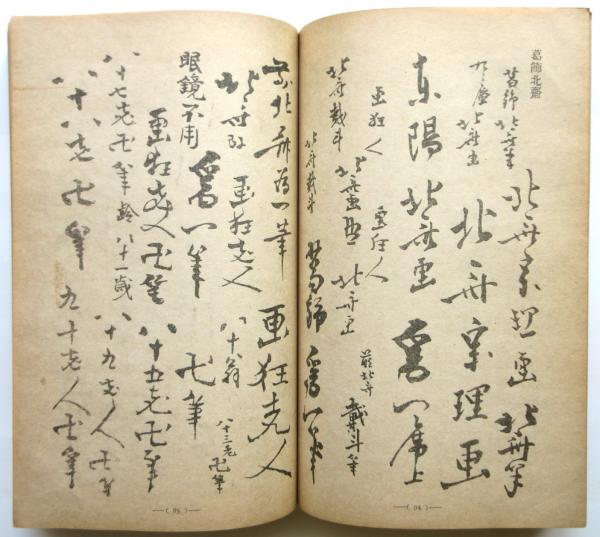 葛飾北齋
葛飾北斎筆
北斎宗理画
北斎筆
九々蜃北斎画
北斎宗理画
東陽北斎画
爲一席上
画狂人
画狂人
北斎載斗
北斎画
北斎画
前北斎
戴斗筆
北斎戴斗
葛飾爲一筆
前北斎爲一筆
画狂老人
北斎改
画狂老人
眼鏡不用
爲一筆
八十翁
卍筆
八十三老卍筆
画狂老人卍筆
八十五老卍筆
八十七老卍筆
齢八十一歳
八十九老人卍筆
八十八老卍筆
九十老人卍筆